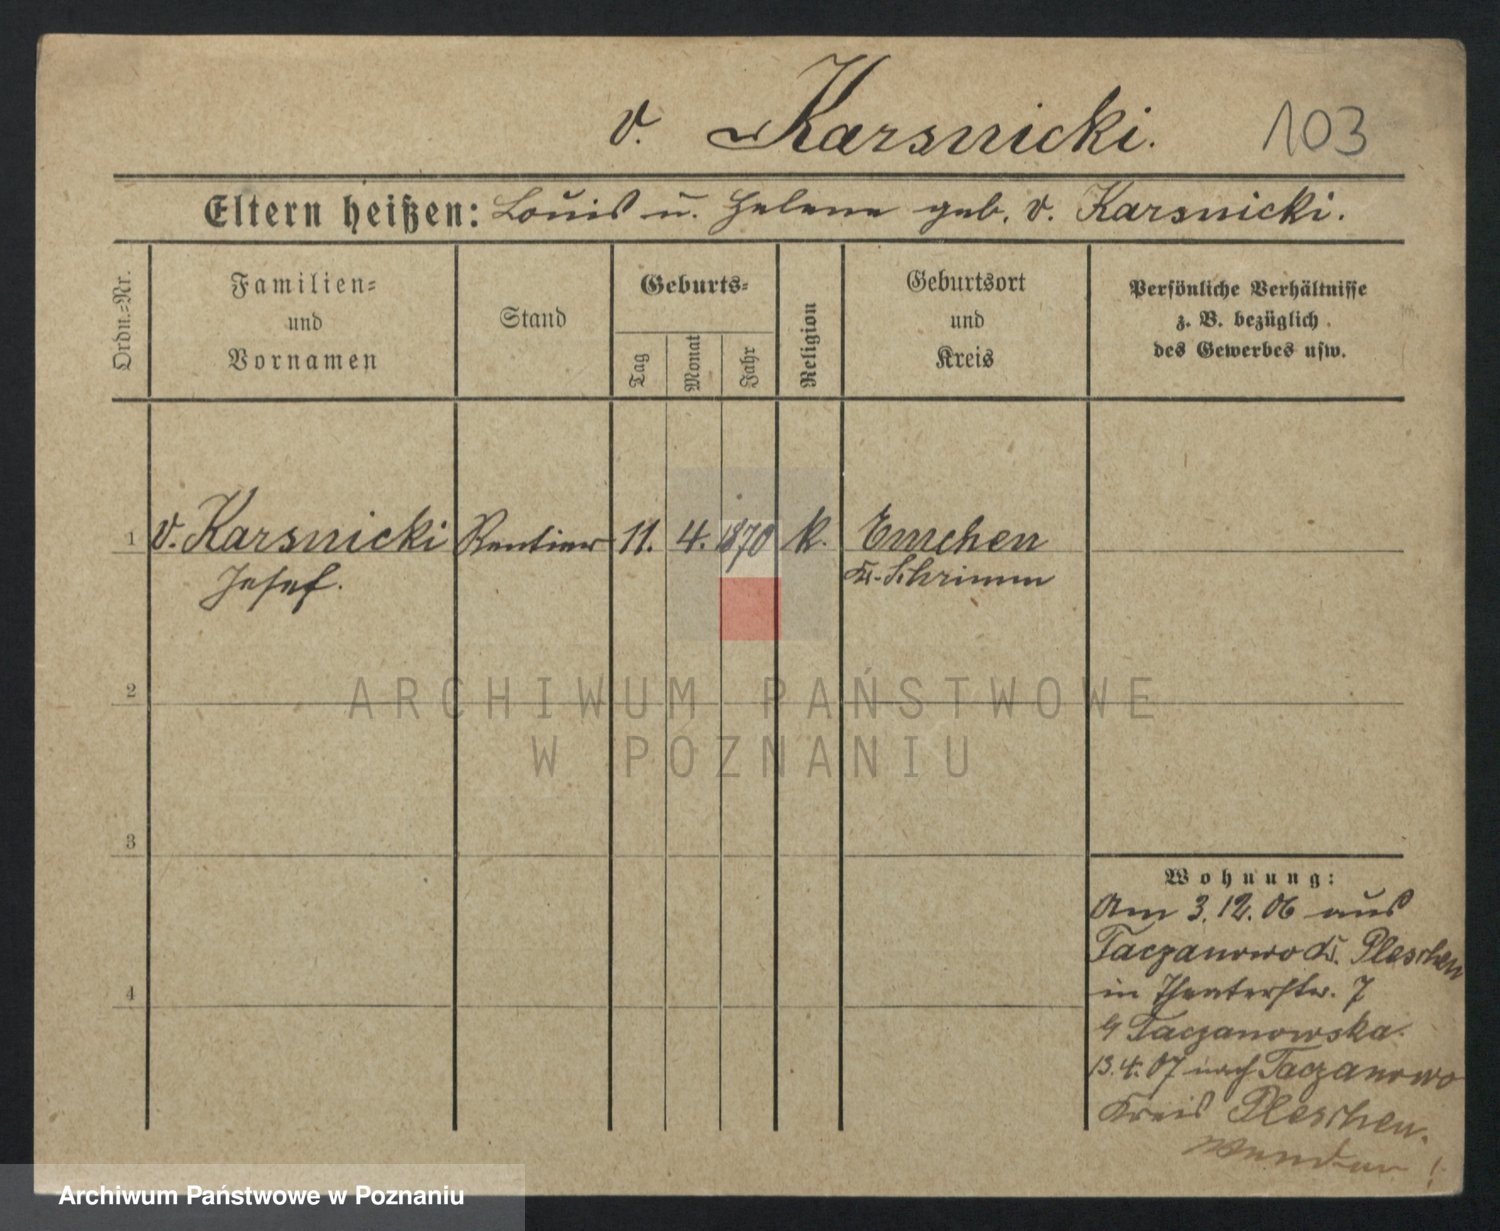 v. Karsnicki. 103
Eltern heißen: Louis u. Helene geb. v. Karsnicki.
Ordn.-Nr.
Familien-
und
Vornamen
Stand
Geburts-
Tag
Monat
Jahr
Religion
Geburtsort
und
Kreis
Persönliche Verhältnisse
z. B. bezüglich
des Gewerbes usw.
1 v. Karsnicki Rentier 11. 4. 1870 k. Emchen
Josef. Kr. Schrimm
2
ARCHIWUM PAŃSTWOWE
W POZNANIU
3
Wohnung:
Am 3.12.06 aus
Taczanowo Kr. Pleschen
4
in Theaterstr. 7
Taczanowska.
13.4.07 nach Taczanowo
Kreis Pleschen.
Wenden!
Archiwum Państwowe w Poznaniu